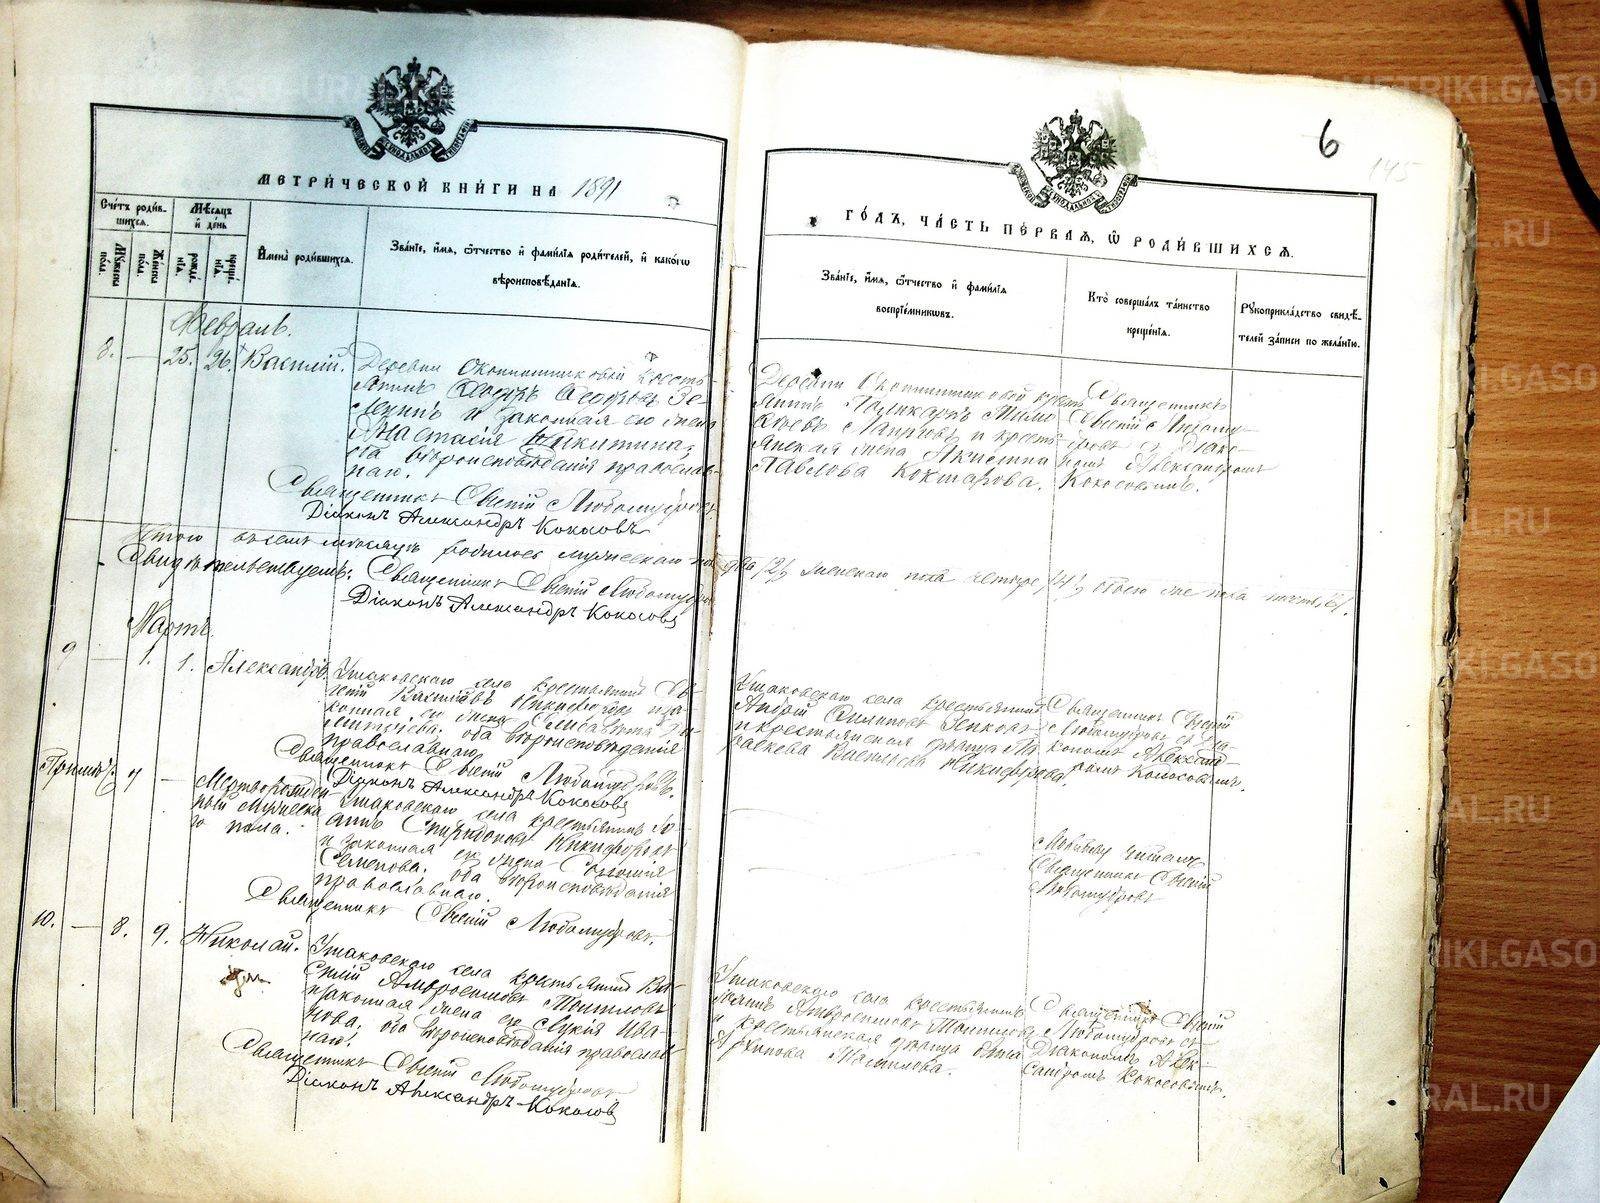 METRIKI.GASO-URAL.RU
6
145
МЕТРИ́ЧЕСКОЙ КНИ́ГИ НА 1891
ГО́ДЪ, ЧА́СТЬ ПЕ́РВАЯ, Ѡ РОДИ́ВШИХСЯ.
Сче́тъ роди́вшихся.
Мѣ́сяцъ и҆ де́нь
Му́жеска по́ла.
Же́нска по́ла.
рожде́нїя.
креще́нїя.
И҆мена̀ роди́вшихся.
Зва́нїе, и҆́мя, ѻ҆́тчество и҆ фами́лїя роди́телей, и҆ како́гѡ
вѣроисповѣ́данїя.
Зва́нїе, и҆́мя, ѻ҆́тчество и҆ фами́лїя
воспрїе́мниковъ.
Кто̀ соверша́лъ та́инство
креще́нїя.
Рꙋкоприкла́дство свидѣ́-
телей за́писи по жела́нїю.
Февраль.
8. — 25. 26. Василій.
Деревни Окопишниковой кресть-
янинъ Ѳеодоръ Ѳеодоровъ Зе-
и законная его жена
Анастасія Никитина,
оба вѣроисповѣданія православ-
наго.
Священникъ Евгеній Любомудровъ
Діаконъ Александръ Кокосовъ
Деревни Окопишниковой кресть-
янинъ
и кресть-
янская жена
Павлова Кокшарова.
Священникъ
Евгеній Любому-
дровъ съ Діако-
номъ Александромъ
Кокосовымъ.
Итого въ семъ мѣсяцѣ родилось мужескаго пола два /2/, женскаго пола четыре /4/, обоего же пола шесть /6/.
Свидѣтельствуемъ: Священникъ Евгеній Любомудровъ
Діаконъ Александръ Кокосовъ
Мартъ.
9 — 1. 1. Александръ.
Ушаковскаго села крестьянинъ Ев-
геній Васильевъ Никифоровъ и за-
конная его жена Елисавета
оба вѣроисповѣданія
православнаго.
Священникъ Евгеній Любомудровъ.
Діаконъ Александръ Кокосовъ
Ушаковскаго села крестьянинъ
Андрей Филиповъ
и крестьянская дѣвица Па-
раскева Васильева Никифорова.
Священникъ Евгеній
Любомудровъ съ Діа-
кономъ Алексан-
дромъ Кокосовымъ.
7 —
Мертворожден-
ный мужеска-
го пола.
Ушаковскаго села крестьянинъ
Спиридоновъ Никифоровъ
и законная его жена
Семенова, оба вѣроисповѣданія
православнаго.
Священникъ Евгеній Любомудровъ.
Молитву читалъ
Священникъ Евгеній
Любомудровъ
10. — 8. 9. Николай.
Ушаковскаго села крестьянинъ Ва-
силій Амвросимовъ
и законная жена его Лукія Ива-
нова, оба вѣроисповѣданія православ-
наго.
Священникъ Евгеній Любомудровъ
Діаконъ Александръ Кокосовъ
Ушаковскаго села крестьянинъ
Амвросимовъ
и крестьянская дѣвица
Священникъ Евгеній
Любомудровъ съ
Діакономъ Алек-
сандромъ Кокосовымъ.